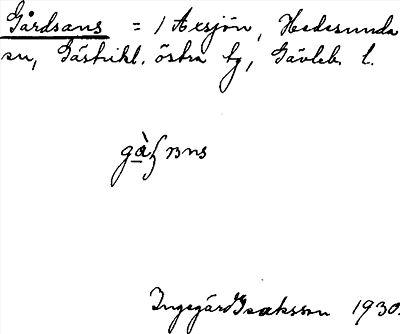 Gårdsans = / Axsjön, Hedesunda
sn, Gästrikl. östra tg, Gävleb. l.
Ingegärd Isaksson 1930.